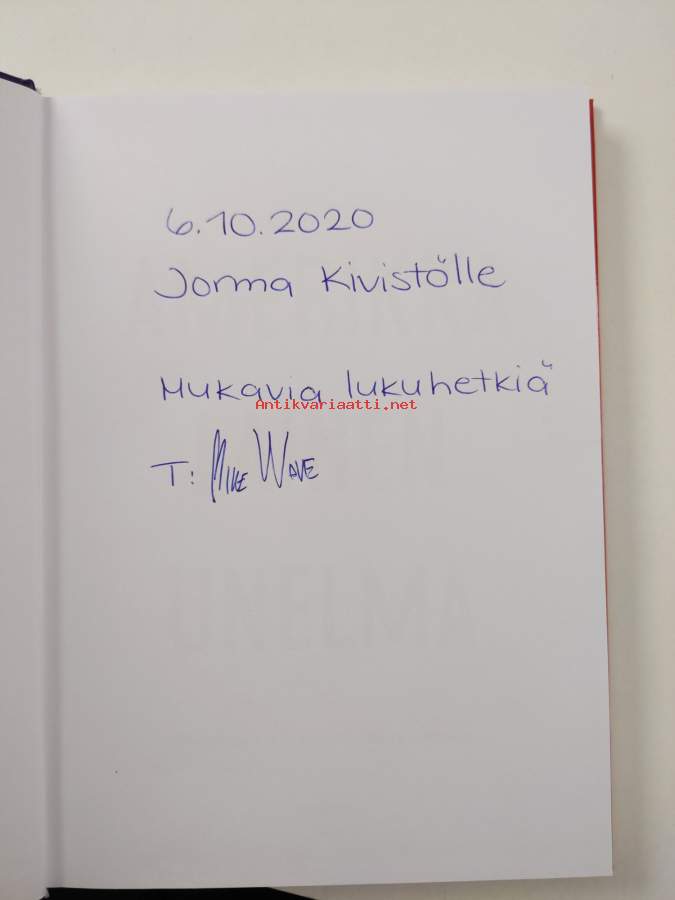 6.10.2020
Jorma Kivistölle
Mukavia lukuhetkiä
Antikvariaatti.net
T: Mike Wave
UNELMA